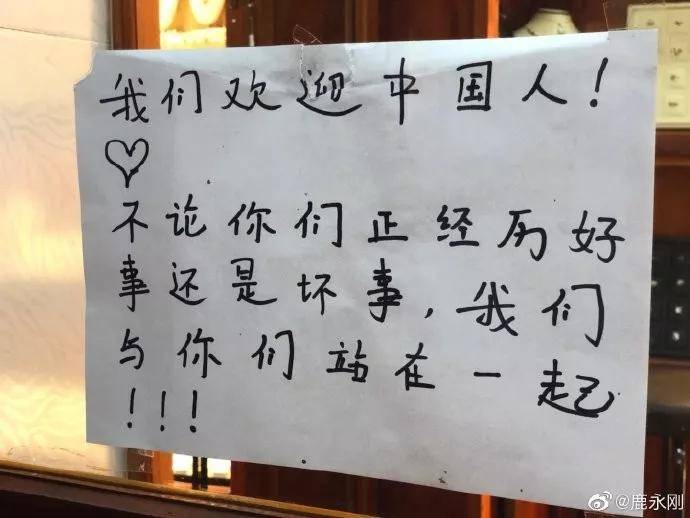 我们欢迎中国人!
♡
不论你们正经历好
事还是坏事,我们
与你们站在一起
!!!
@鹿永刚